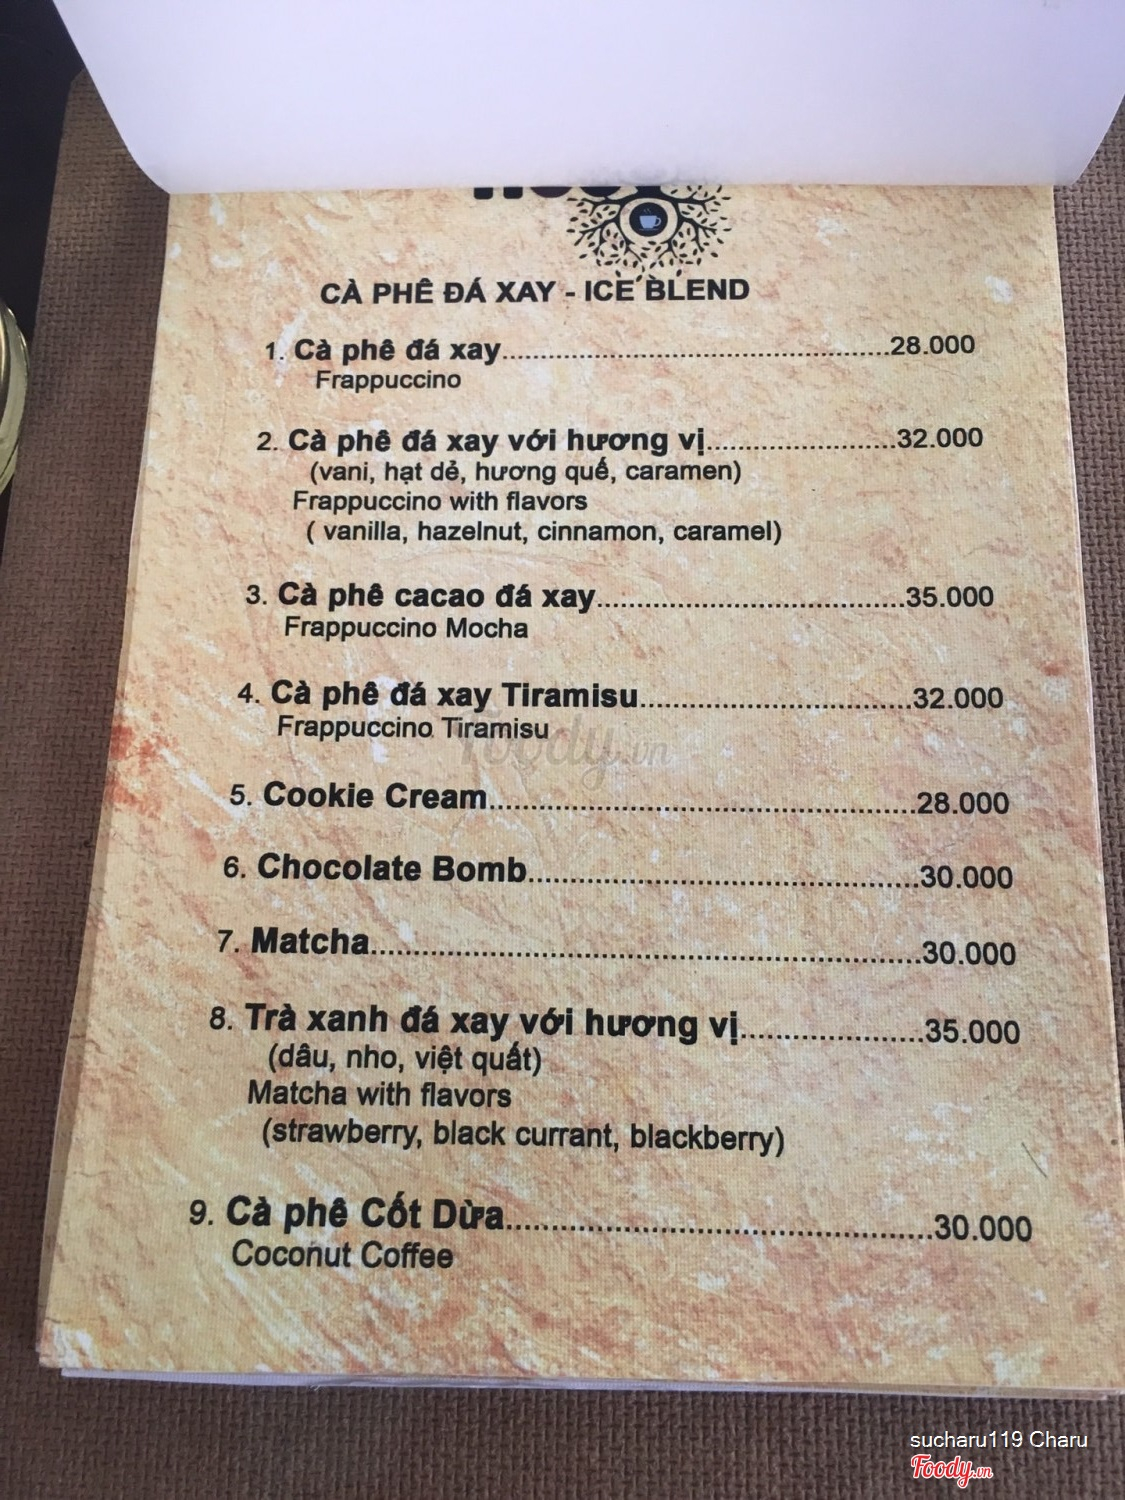 CÀ PHÊ ĐÁ XAY - ICE BLEND
1. Cà phê đá xay..........28.000
Frappuccino
2. Cà phê đá xay với hương vị..........32.000
(vani, hạt dẻ, hương quế, caramen)
Frappuccino with flavors
( vanilla, hazelnut, cinnamon, caramel)
3. Cà phê cacao đá xay..........35.000
Frappuccino Mocha
4. Cà phê đá xay Tiramisu..........32.000
Frappuccino Tiramisu
foody.vn
5. Cookie Cream..........28.000
6. Chocolate Bomb..........30.000
7. Matcha..........30.000
8. Trà xanh đá xay với hương vị..........35.000
(dâu, nho, việt quất)
Matcha with flavors
(strawberry, black currant, blackberry)
9. Cà phê Cốt Dừa..........30.000
Coconut Coffee
sucharu119 Charu
Foody.vn